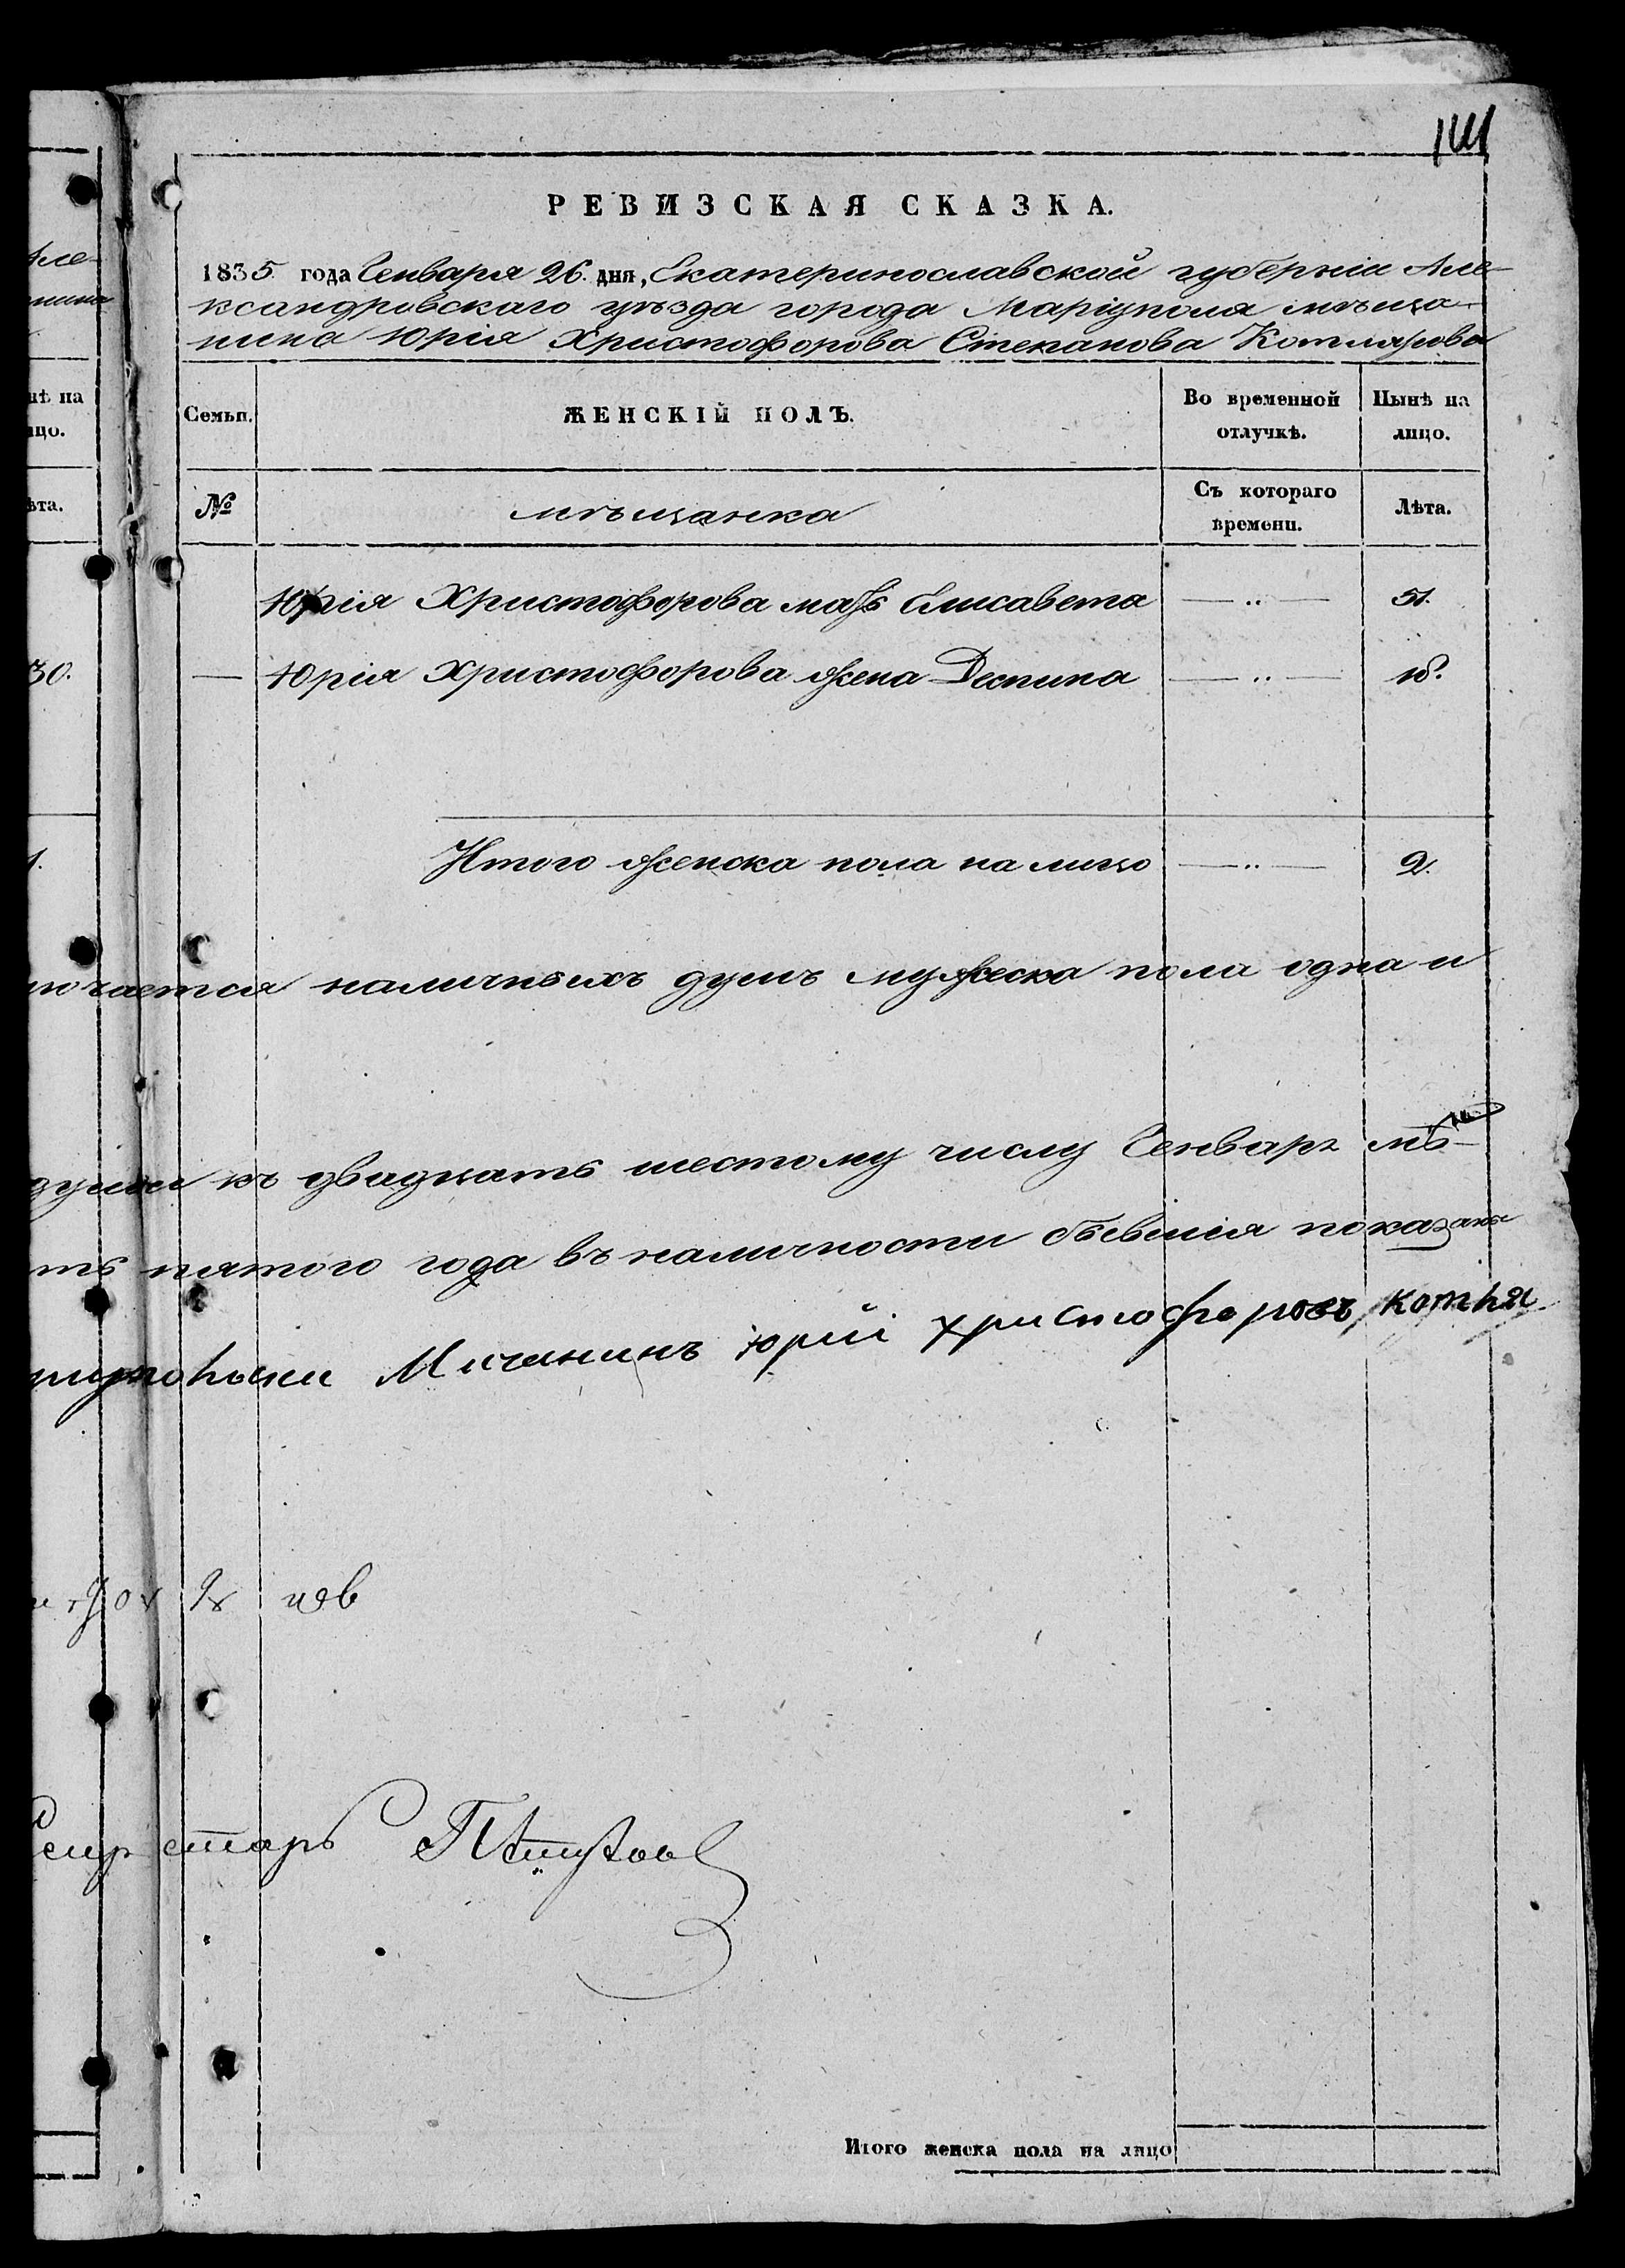 141
РЕВИЗСКАЯ СКАЗКА.
1835 года Генваря 26 дня, Екатеринославской губерніи Але-
ксандровскаго уѣзда города Маріуполя мѣща-
нина Юрія Христофорова Степанова Котлярова
нѣ на
Семьи.
ЖЕНСКІЙ ПОЛЪ.
Во временной
отлучкѣ.
Нынѣ на
лицо.
№
мѣщанка
Съ котораго
времени.
Лѣта.
Юрія Христофорова мать Елисавета — „ — 51.
30. — Юрія Христофорова жена Деспина — „ — 18.
Итого женска пола на лицо — „ — 2.
ючается наличныхъ душъ мужеска пола одна и
души къ двадцать шестому числу Генваря мѣ-
ть пятого года въ наличности бывшія показаны
Мичанинъ Юрій Христофоровъ Котля
истарь
Итого женска пола на лицо